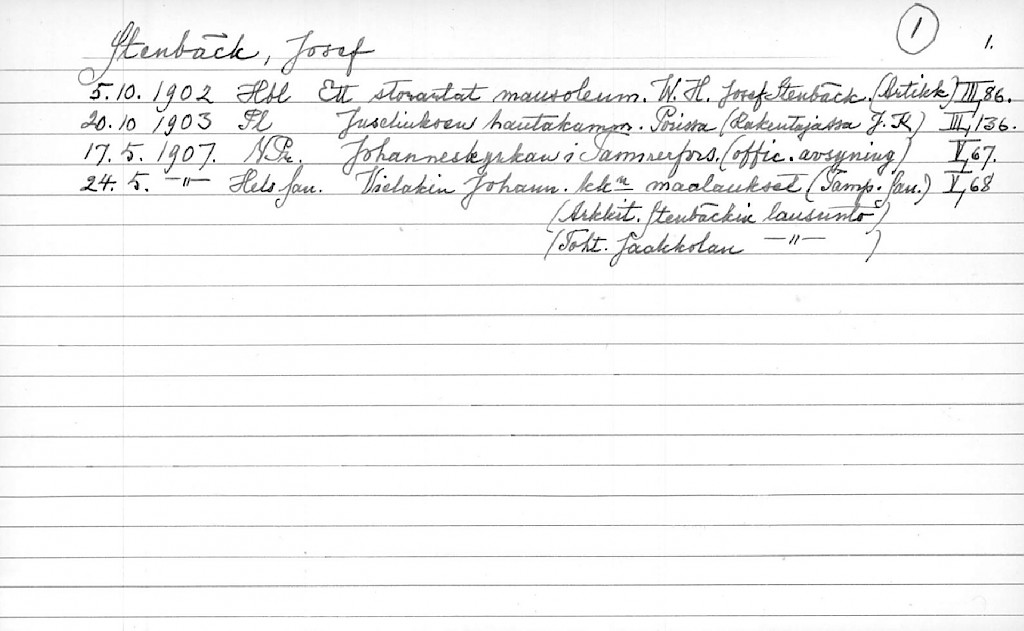 Stenbäck, Josef ① 1.
5.10.1902 Hbl Ett storartat mausoleum. W. H. Josef Stenbäck. (Artikk) III,86.
20.10 1903 Pl Juseliuksen hautakamm. Porissa (Rakentajassa J. K) III,136.
17.5.1907. N.Pr. Johanneskyrkan i Tammerfors. (offic. avsyning) V,67.
24.5. —"— Hels San. Vieläkin Johann. kkn maalaukset (Tamp. San.) V,68
(Arkkit. Stenbäckin lausunto)
(Toht. Jaakkolan —"— )